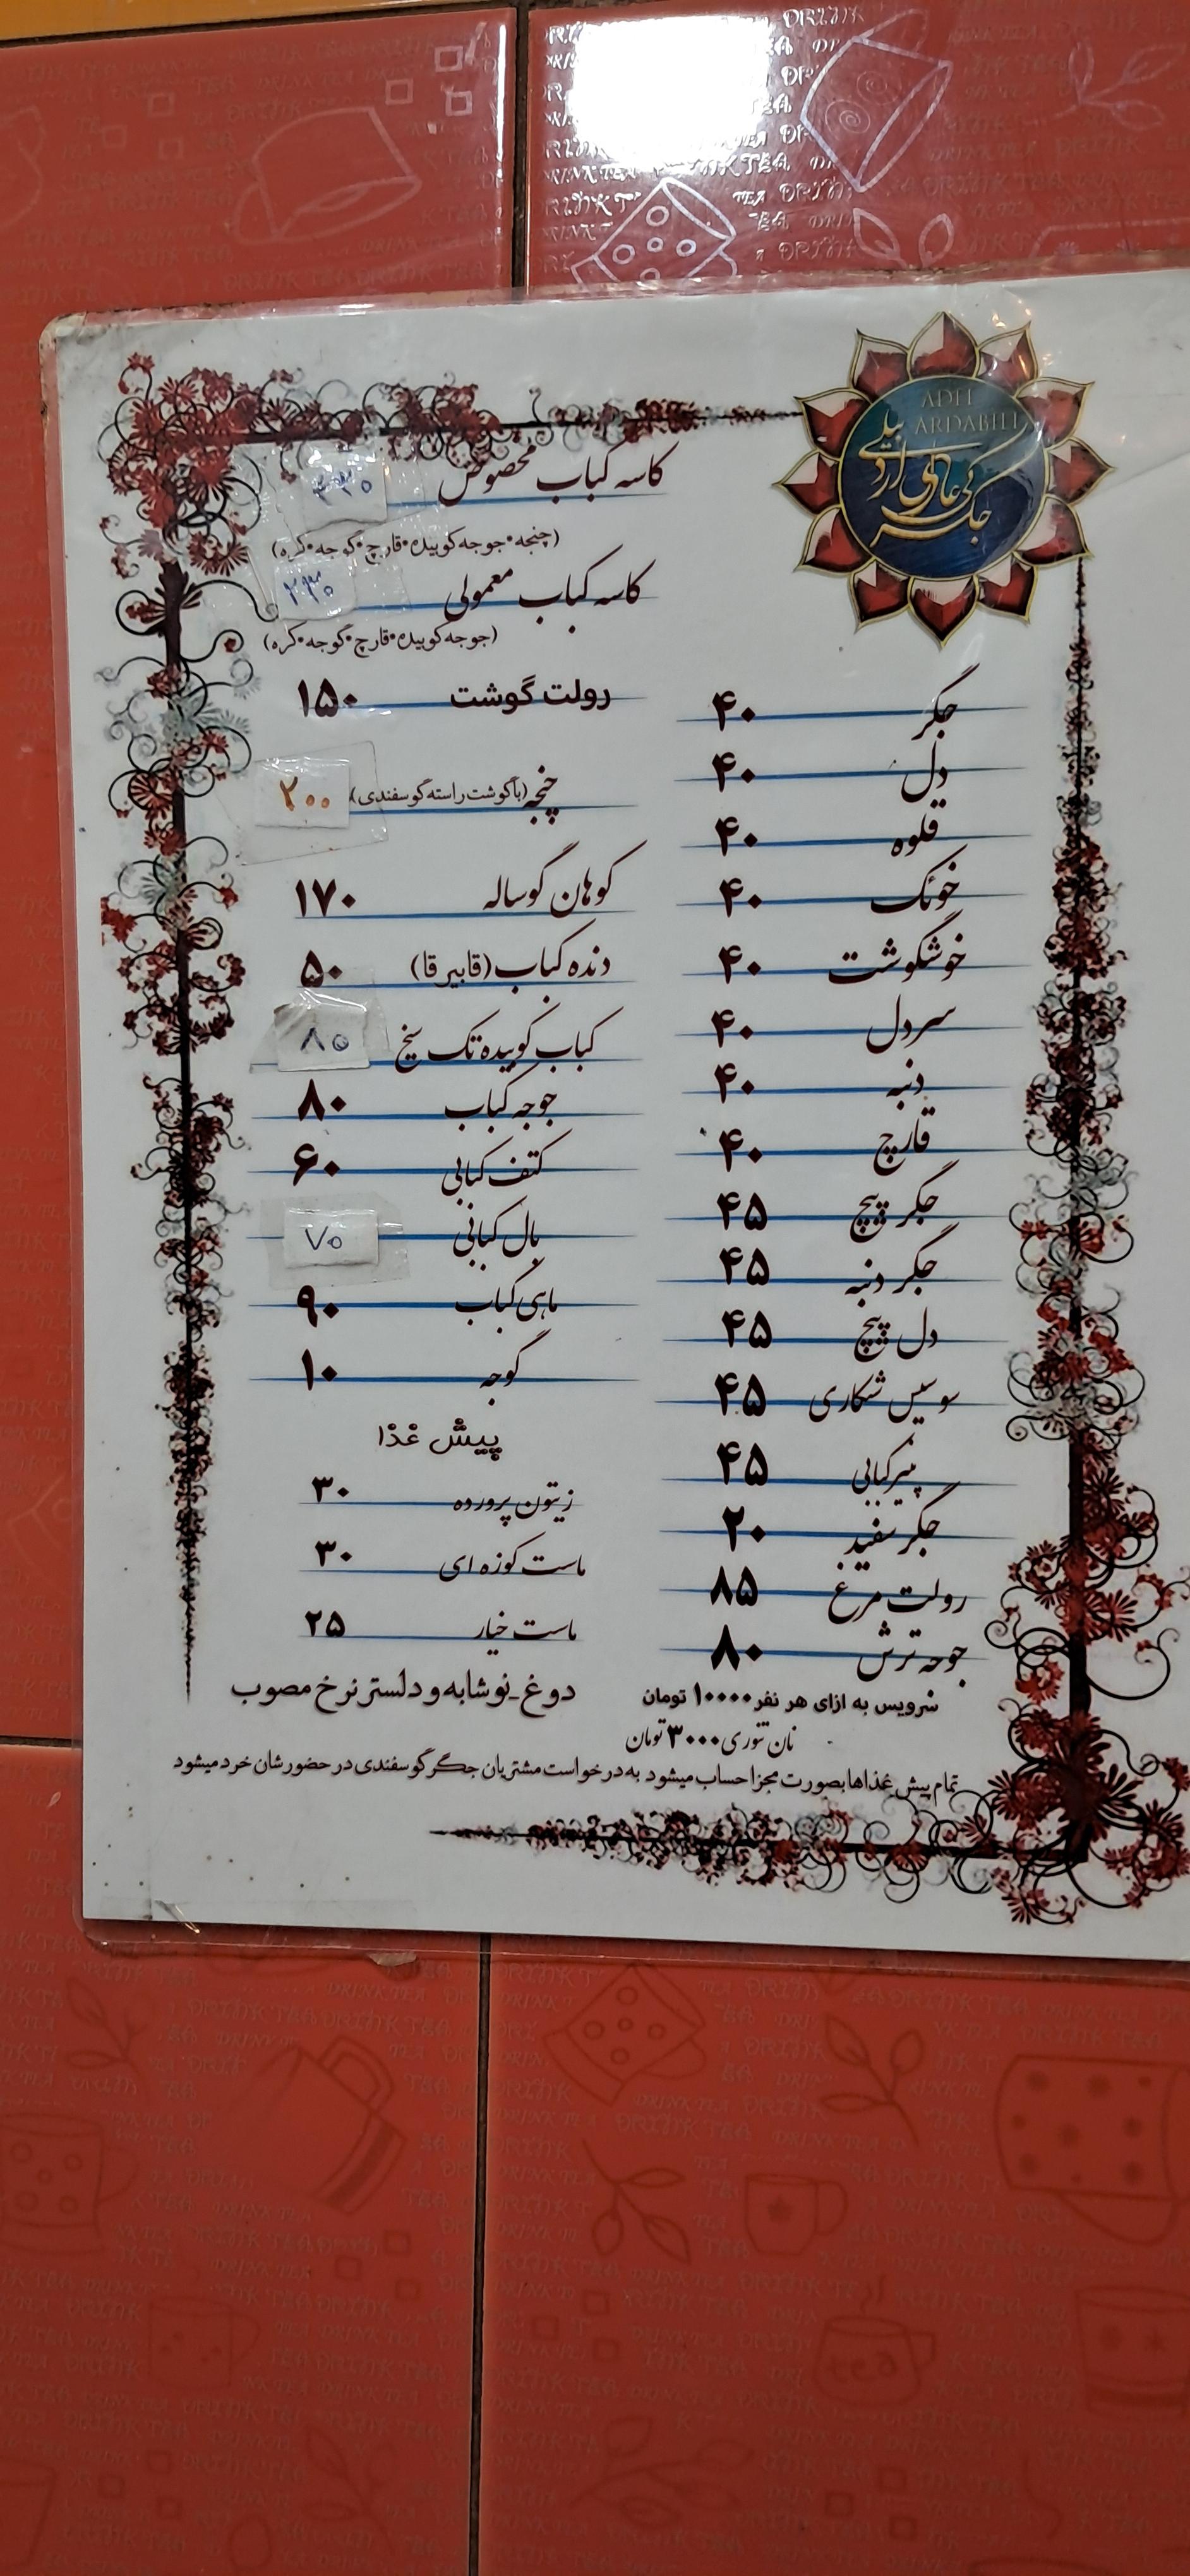 ADEL
ARDABILI
جگرکی عادل اردبیلی
کاسه کباب مخصوص ۳۳۰
(چنجه•جوجه•کوبیده•قارچ•گوجه•کره)
کاسه کباب معمولی ۲۳۰
(جوجه•کوبیده•قارچ•گوجه•کره)
رولت گوشت ۱۵۰
چنجه (باگوشت راسته گوسفندی) ۲۰۰
کوهان گوساله ۱۷۰
دنده کباب (قابیرقا) ۵۰
کباب کوبیده تک سیخ ۸۵
جوجه کباب ۸۰
کتف کبابی ۶۰
بال کبابی ۷۵
ماهی کباب ۹۰
گوجه ۱۰
پیش غذا
زیتون پرورده ۳۰
ماست کوزه ای ۳۰
ماست خیار ۲۵
دوغ-نوشابه و دلستر نرخ مصوب
جگر ۴۰
دل ۴۰
قلوه ۴۰
خوئک ۴۰
خوشگوشت ۴۰
سردل ۴۰
دنبه ۴۰
قارچ ۴۰
جگر پیچ ۴۵
جگر دنبه ۴۵
دل پیچ ۴۵
سوسیس شکاری ۴۵
پنیر کبابی ۴۵
جگر سفید ۲۰
رولت مرغ ۸۵
جوجه ترش ۸۰
سرویس به ازای هر نفر ۱۰۰۰۰ تومان
نان تنوری ۳۰۰۰ تومان
تمام پیش غذاها بصورت مجزا حساب میشود به درخواست مشتریان جگر گوسفندی در حضورشان خرد میشود